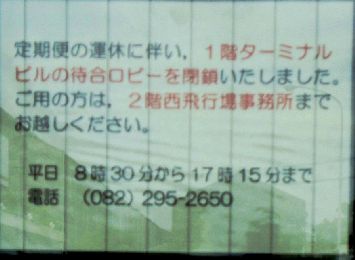 定期便の運休に伴い，１階ターミナル
ビルの待合ロビーを閉鎖いたしました。
ご用の方は，２階西飛行場事務所まで
お越しください。
平日 ８時30分から17時15分まで
電話 （082）295-2650